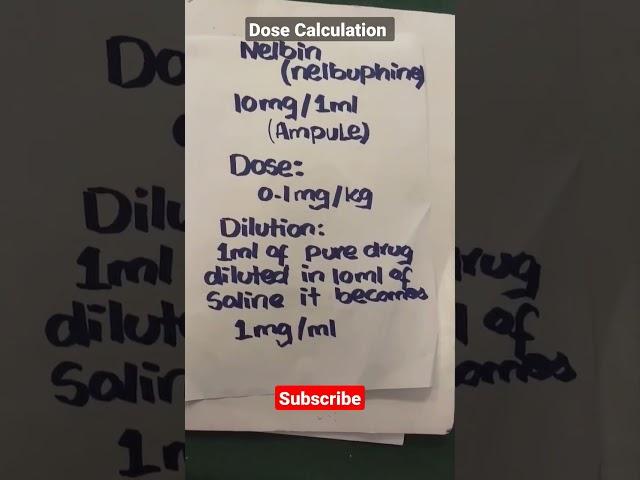 Dose Calculation
Nelbin
(nelbuphine)
10mg/1ml
(Ampule)
Dose:
0.1mg/kg
Dilution:
1ml of pure drug
diluted in 10ml of
Saline it becomes
1mg/ml
Subscribe